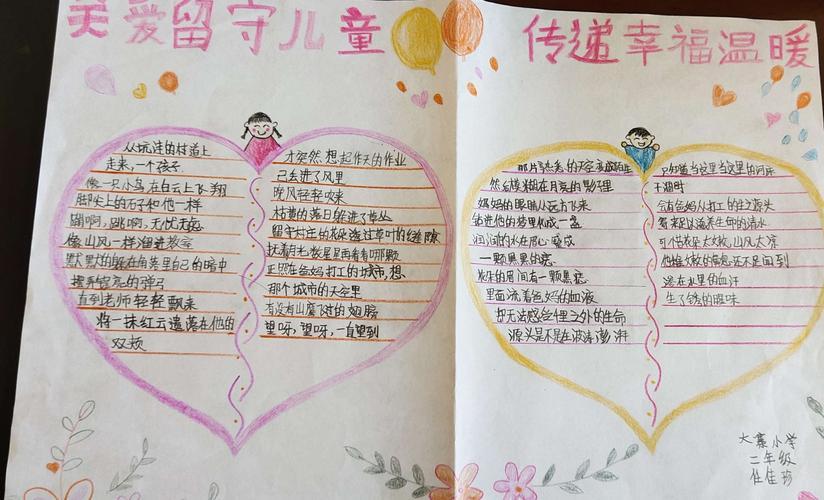 关爱留守儿童
传递幸福温暖
从玩洼的村道上
走来，一个孩子
像一只小鸟在白云上飞翔
脚尖上的石子和他一样
蹦啊，跳啊，无忧无虑
像山风一样溜进教室
默默的躲在角落里自己的暗中
摆弄空亮的弹弓
直到老师轻轻飘来
将一抹红云遗落在他的
双颊
才突然想起昨天的作业
己丢进了风里
晚风轻轻吹来
枯黄的落日躲进了草丛
留守村庄的狄透过草叶的缝隙
扶着月光数星星看看哪颗
正照在爸妈打工的城市，想
那个城市的天空里
有没有山鹰飞过的翅膀
望呀，望呀，一直望到
那片熟悉的天空变成陌生
然后模糊在月亮的影子里
妈妈的眼睛从远方飞来
钻进他的梦里化成一盏
润润的水在眉心凝成
一颗黑黑的痣
先生的眉间有一颗黑痣
里面流着爸妈的血液
却无法感受埋之外的生命
源头是不是在波涛澎湃
只知道当这里当这里的河床
干涸时
会有爸妈从打工的生之源头
寄来足以滋养生命的清水
可惜衣单太微，山风太凉
他稚嫩的鼻息还不足闻到
渗在水里的血汗
生了锈的腥味
大寨小学
二年级
任佳珍